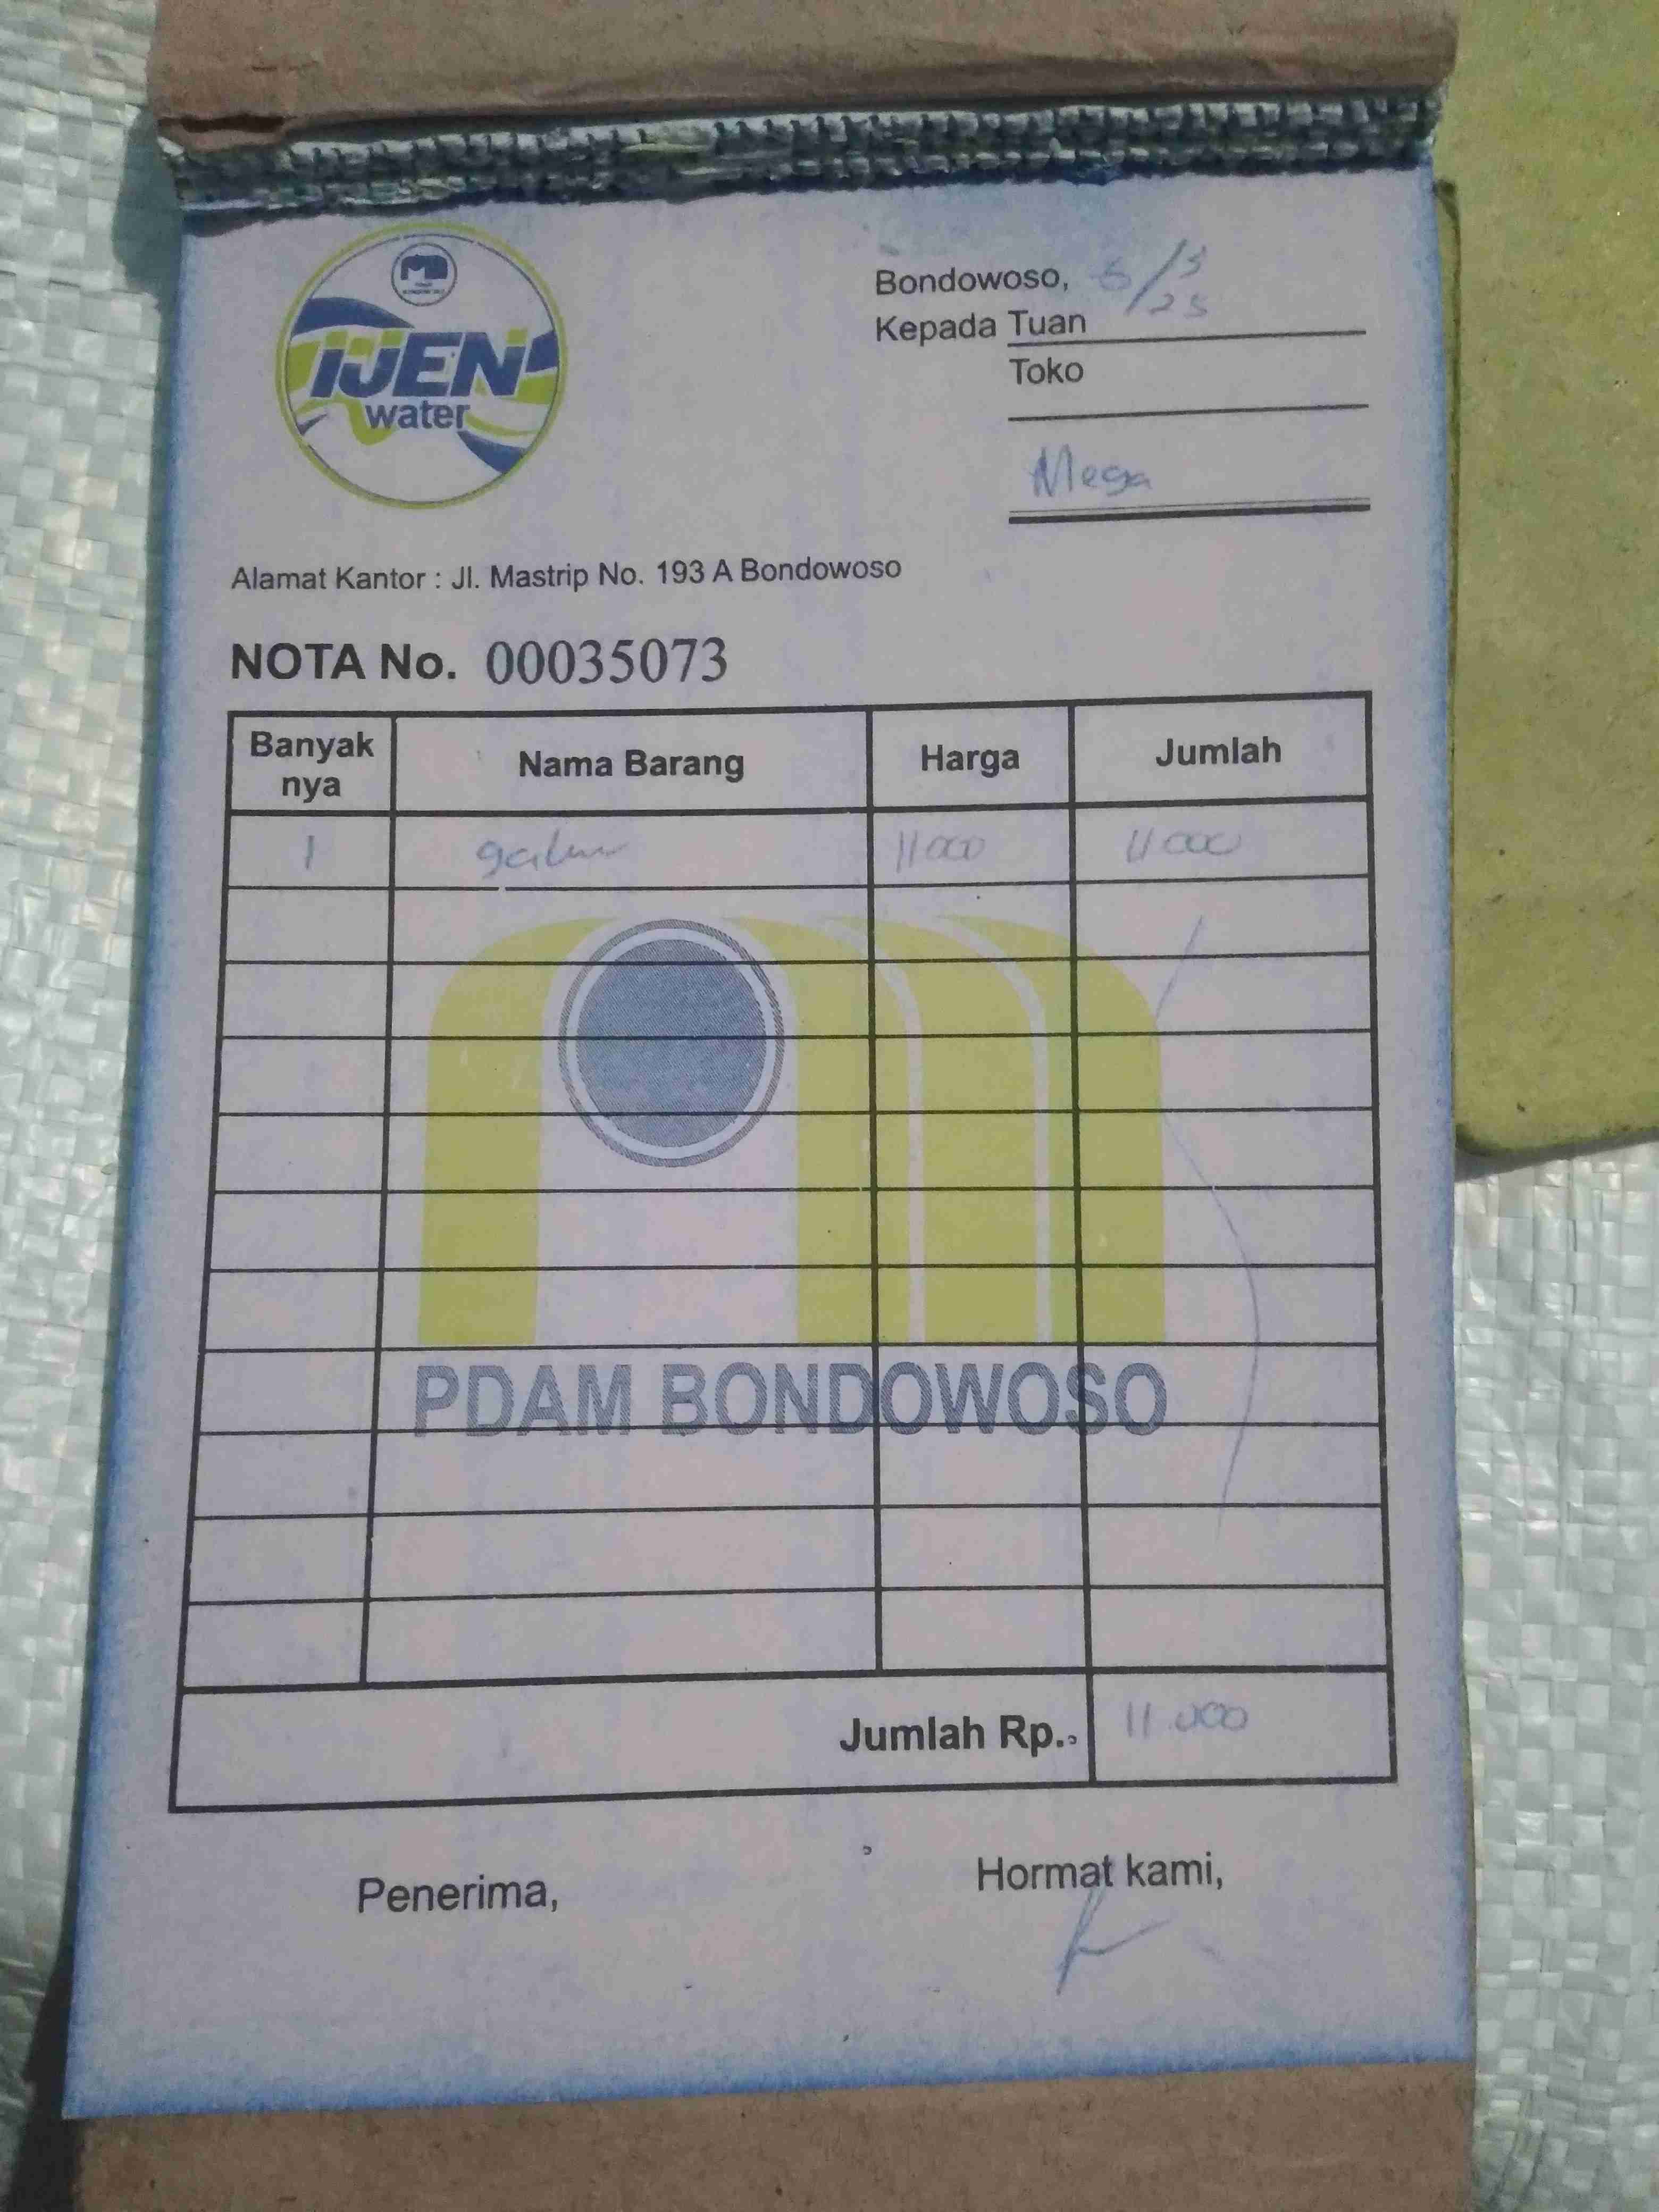 IJEN
water
Bondowoso, 5/3
25
Kepada Tuan
Toko
Mega
Alamat Kantor : Jl. Mastrip No. 193 A Bondowoso
NOTA No. 00035073
Banyak nya Nama Barang Harga Jumlah
1 galon 11 000 11 000
PDAM BONDOWOSO
Jumlah Rp. 11.000
Penerima, Hormat kami,